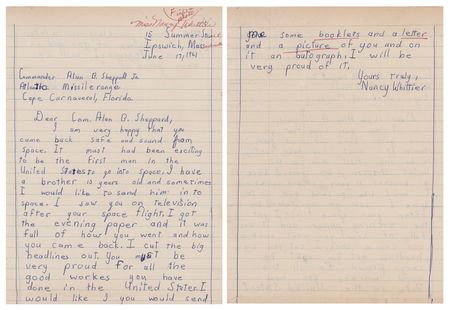 Miss Nancy Whittier
15 Summer Street
Ipswich, Mass
June 17, 1961
Commander Alan B. Sheppard Jr.
Atlantic Missile range
Cape Carnaveral, Florida
Dear Com. Alan B. Sheppard,
I am very happy that you
came back safe and sound from
space. It must had been exciting
to be the first man in the
United States to go into space. I have
a brother 15 years old and sometimes
I would like to send him in to
space. I saw you on television
after your space flight. I got
the evening paper and it was
full of how you went and how
you came back. I cut the big
headlines out. You must be
very proud for all the
good workes you have
done in the United States. I
would like I you would send
me some booklets and a letter
and a picture of you and on
it an autograph. I will be
very proud of it.
Yours truly,
Nancy Whittier